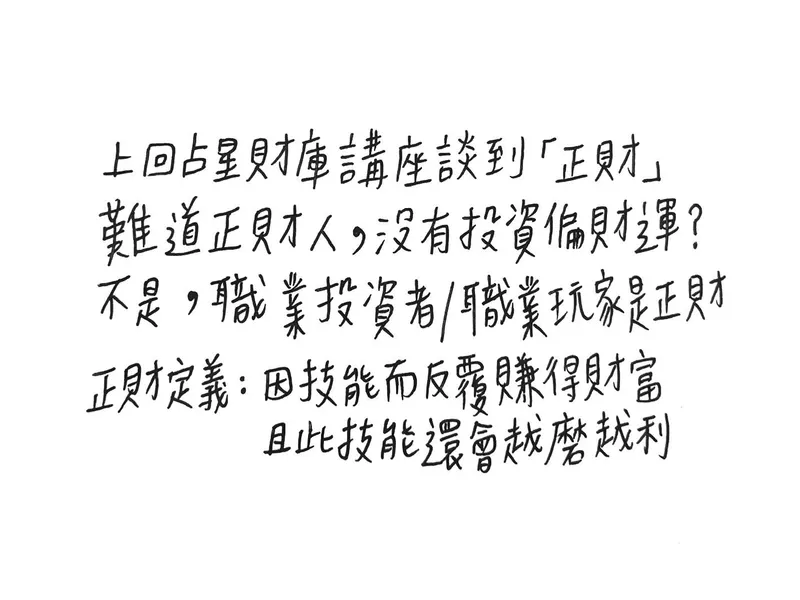 上回占星財庫講座談到「正財」
難道正財人，沒有投資偏財運？
不是，職業投資者/職業玩家是正財
正財定義：因技能而反覆賺得財富
且此技能還會越磨越利